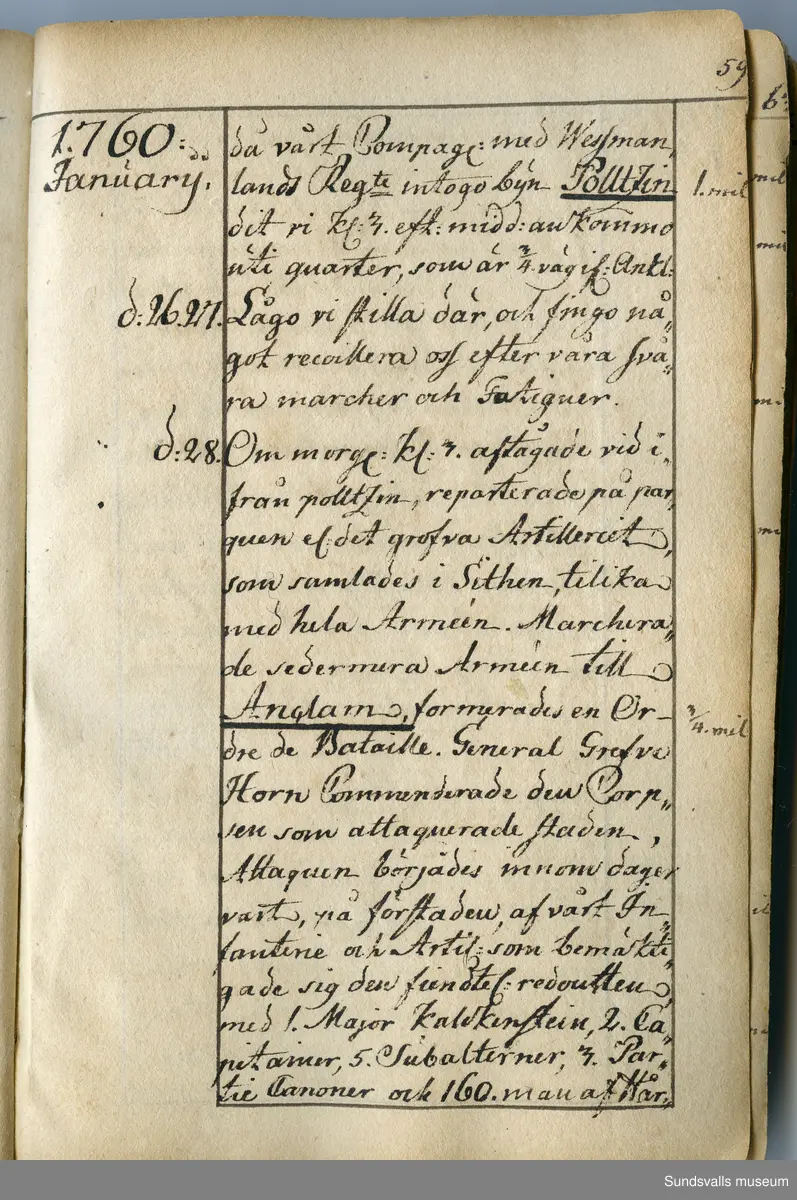 59
1.760:
January.
då vårt Compagn: med Wessman„
lands Regte intogo byn Polltzin
1. mil
dit vi kl: 3. eft: midd: ankommo
uti quarter, som är 3/4 väg if: Ankl:
d: 26. 27. Lågo vi stilla där, och fingo nå„
got recoillera oss efter våra svå„
ra marcher och Fatiguer.
d: 28. Om morg: kl: 3. aftågade vid i„
från polltzin, reparterade på par„
quen el: det grofva Artilleriet,
som samlades i Sithen, tilika
med hela Arméen. Marchera„
de sedermera Arméen till
Anglam, formerades en Or–
3/4. mil
dre de Bataille. General Grefve
Horn Commenderade den Corp„
sen som attaquerade staden,
Attaquen börjades innom dager
vart, på förstaden, af vårt In„
fanterie och Artil: som bemäkti„
gade sig den fiendtel: redoutten
med 1. Major Kalckenstein, 2. Ca„
pitainer, 5. Subalterner, 3. Par„
tie Canoner och 160. man af Hår„
Sundsvalls museum